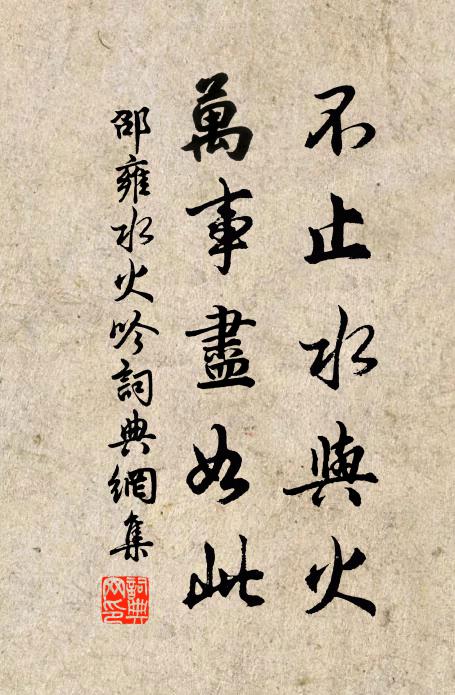 不止水與火
萬事盡如此
邵雍水火吟詞典網集
詞典網印